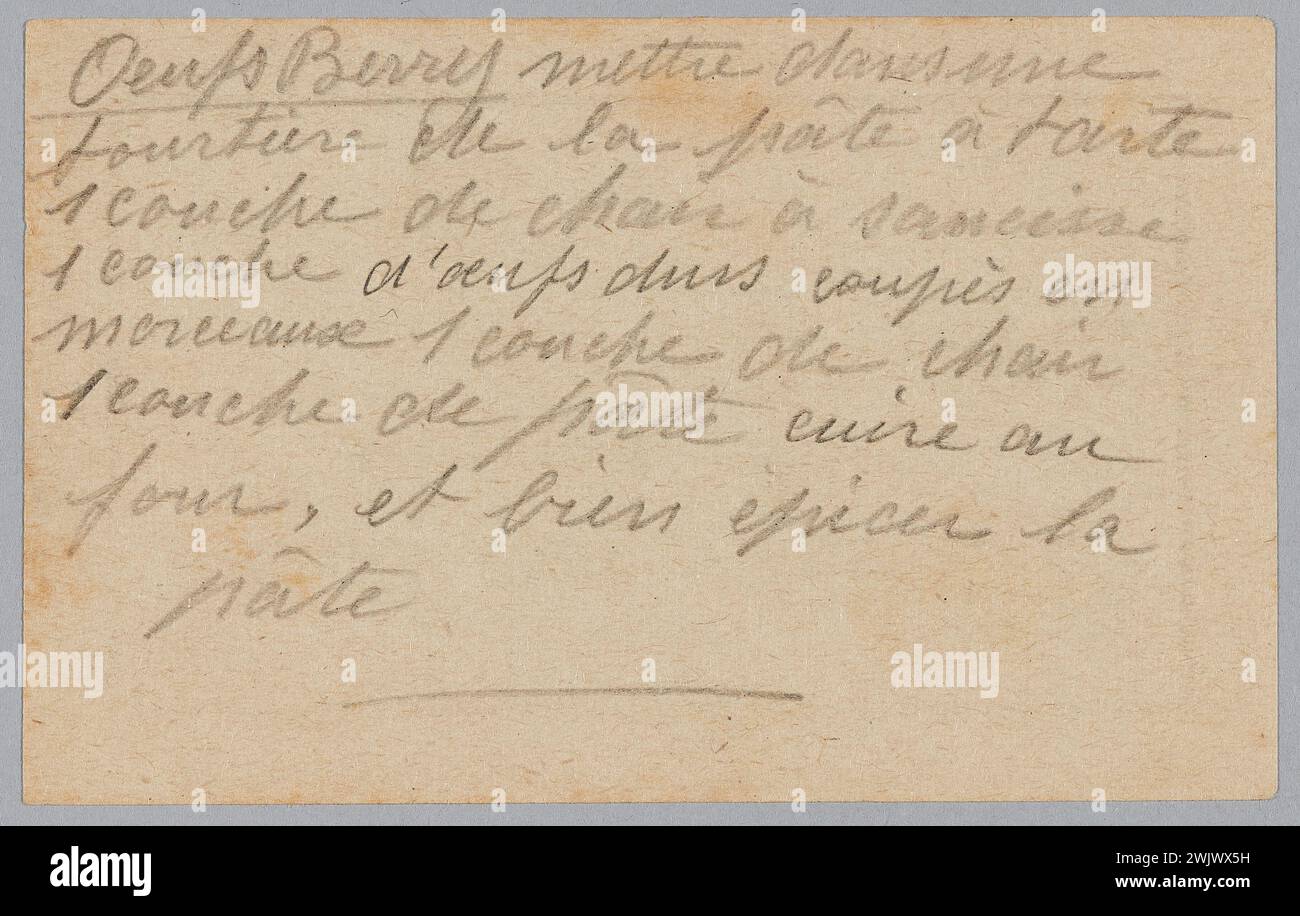 Oeufs Berry mettre dans une
tourtière de la pâte à tarte
1 couche de chair à saucisse
1 couche d'œufs durs coupés en
morceaux 1 couche de chair
1 couche de pâte cuire au
four, et bien épicer la
pâte
alamy
Image ID: 2WJWX5H
www.alamy.com